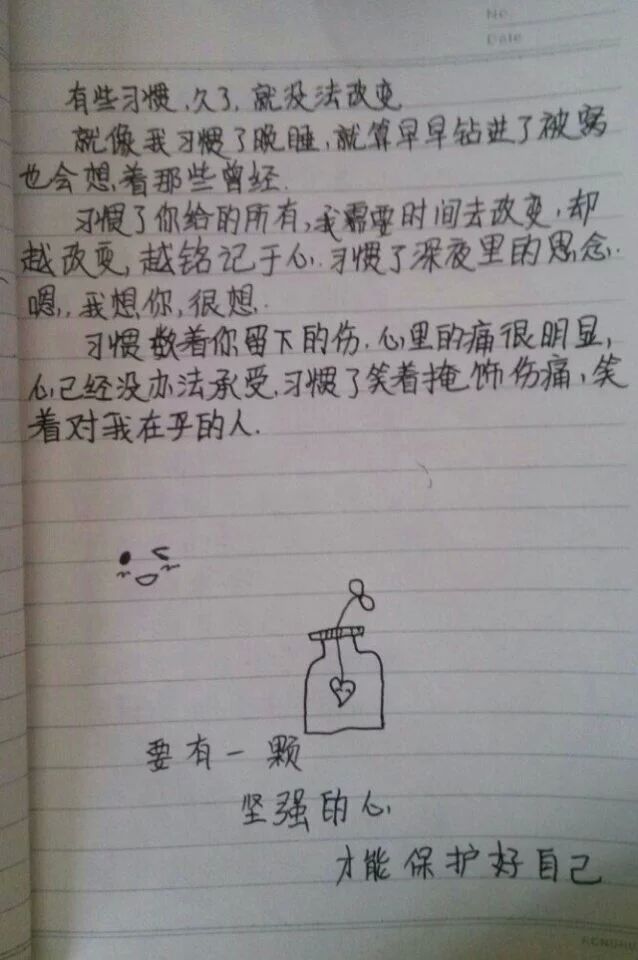 No
Date
有些习惯,久了,就没法改变
就像我习惯了晚睡,就算早早钻进了被窝
也会想着那些曾经.
习惯了你给的所有,我需要时间去改变,却
越改变,越铭记于心.习惯了深夜里的思念.
嗯,我想你,很想.
习惯数着你留下的伤.心里的痛很明显,
心已经没办法承受,习惯了笑着掩饰伤痛,笑
着对我在乎的人.
要有一颗
坚强的心
才能保护好自己